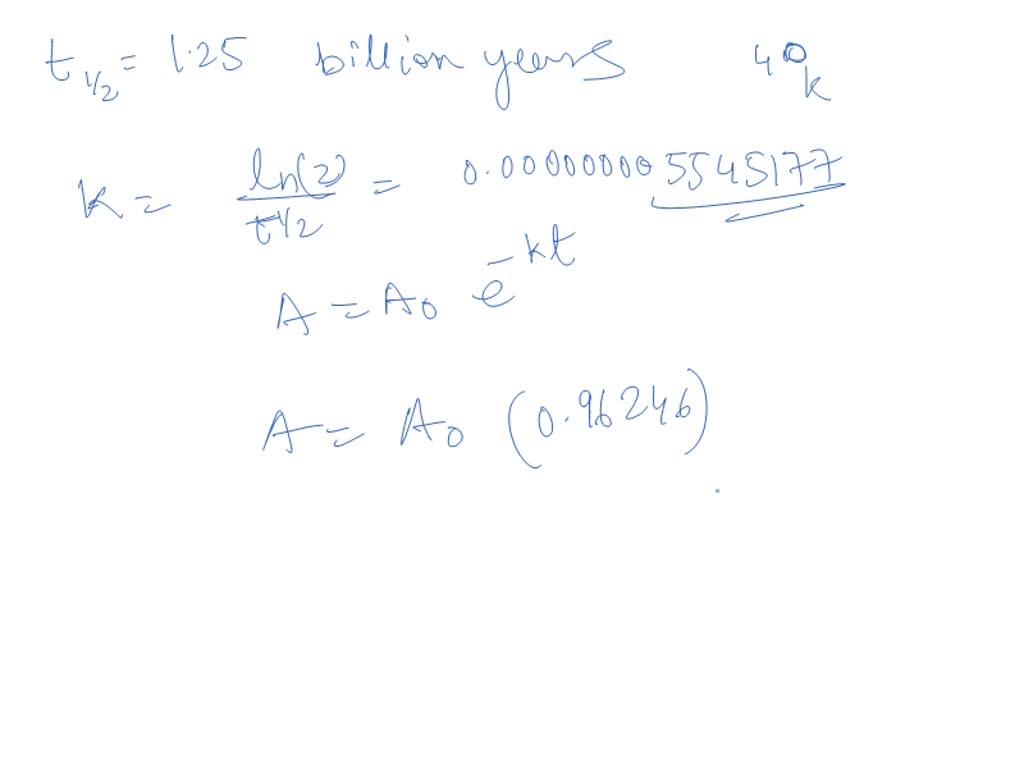 t1/2 = 1.25 billion years 40K
K = ln(2)/t1/2 = 0.000000005545177
A = A0 e^-kt
A = A0 (0.96246)